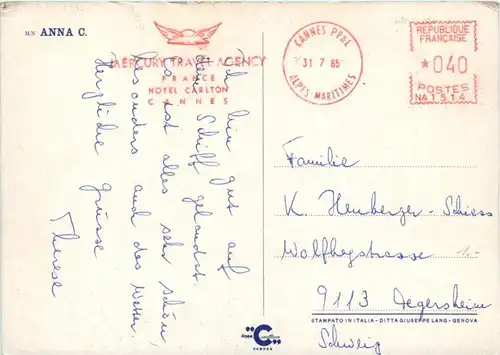 M/N ANNA C.
MERCURY TRAVEL AGENCY
FRANCE
HOTEL CARLTON
CANNES
CANNES PPAL
31 7 65
ALPES MARITIMES
REPUBLIQUE
FRANCAISE
*040
POSTES
NA 1514
Ich bin gut auf
dem Schiff gelandet.
Es ist alles sehr schön
besonders auch das Wetter.
Herzliche Grüsse
Therese
Familie
K. Heuberger-Schiess
Wolfhagstrasse
1.-
9113 Degersheim
Schweiz
STAMPATO IN ITALIA - DITTA GIUSEPPE LANG - GENOVA
C
GENOVA